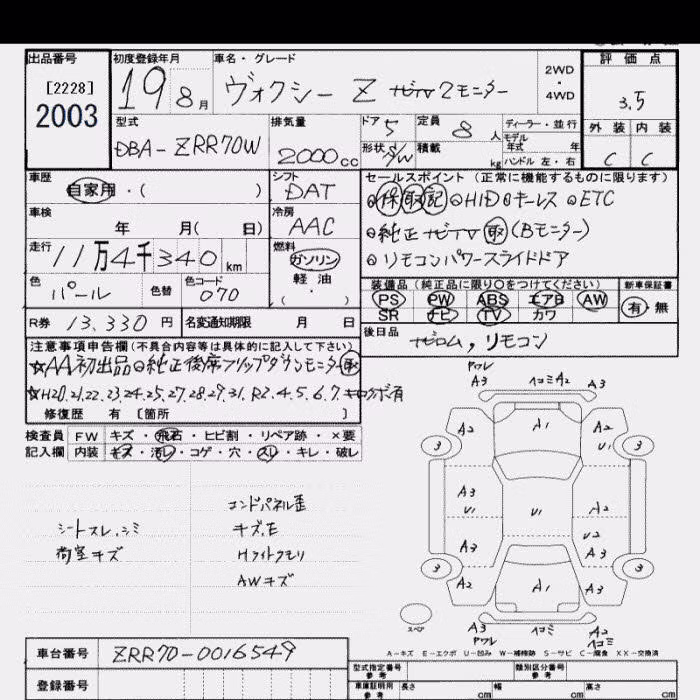 出品番号 初度登録年月 車名・グレード 2WD・4WD 評価点
[2228]
2003
19 8月 ヴォクシー Z ナビTV 2モニター 3.5
型式 排気量 ドア 5 定員 8人 ディーラー・並行 外装 内装
DBA-ZRR70W 2000cc 形状 S/W 積載 kg モデル年式 年 ハンドル 左・右 C C
車歴 シフト セールスポイント(正常に機能するものに限ります)
自家用・( ) DAT ◎保 取 記 ◎HID ◎キーレス ◎ETC
車検 冷房
年 月( 日) AAC ◎純正ナビTV 取 (Bモニター)
走行 燃料 ◎リモコンパワースライドドア
11万4千340km ガソリン
軽油
色 色替 色コード 装備品(純正品に限り○をつけてください) 新車保証書
パール 070 PS PW ABS エアB AW 有・無
SR ナビ TV カワ
R券 13,330円 名変通知期限 月 日 後日品
ナビロム, リモコン
注意事項申告欄(不具合内容等は具体的に記入して下さい)
☆AA初出品 ◎純正後席フリップダウンモニター 取
☆H20.21.22.23.24.25.27.28.29.31.R2.4.5.6.7.キロクボ有
修復歴 有 [箇所 ]
検査員 FW キズ・飛石・ヒビ割・リペア跡・×要
記入欄 内装 キズ・汚レ・コゲ・穴・スレ・キレ・破レ
エンドパネル歪
シートスレ,シミ キズ,E
荷室キズ Hライトクモリ
AWキズ
ワレ
A3 ヨコミA2 A3
A2 A1 A2
3 U1 3
A3
U1 U1 A2
U2
A3 A3
3 3
A2 A1 A3
スペア
A3 ヨコミ A2
ワレ ヨコミ
A-キズ E-エクボ U-凹み W-補修跡 S-サビ C-腐食 XX-交換済
車台番号 ZRR70-0016549
登録番号
型式指定番号 参考 類別区分番号 参考
車庫証明用 参考 長さ cm 幅 cm 高さ cm